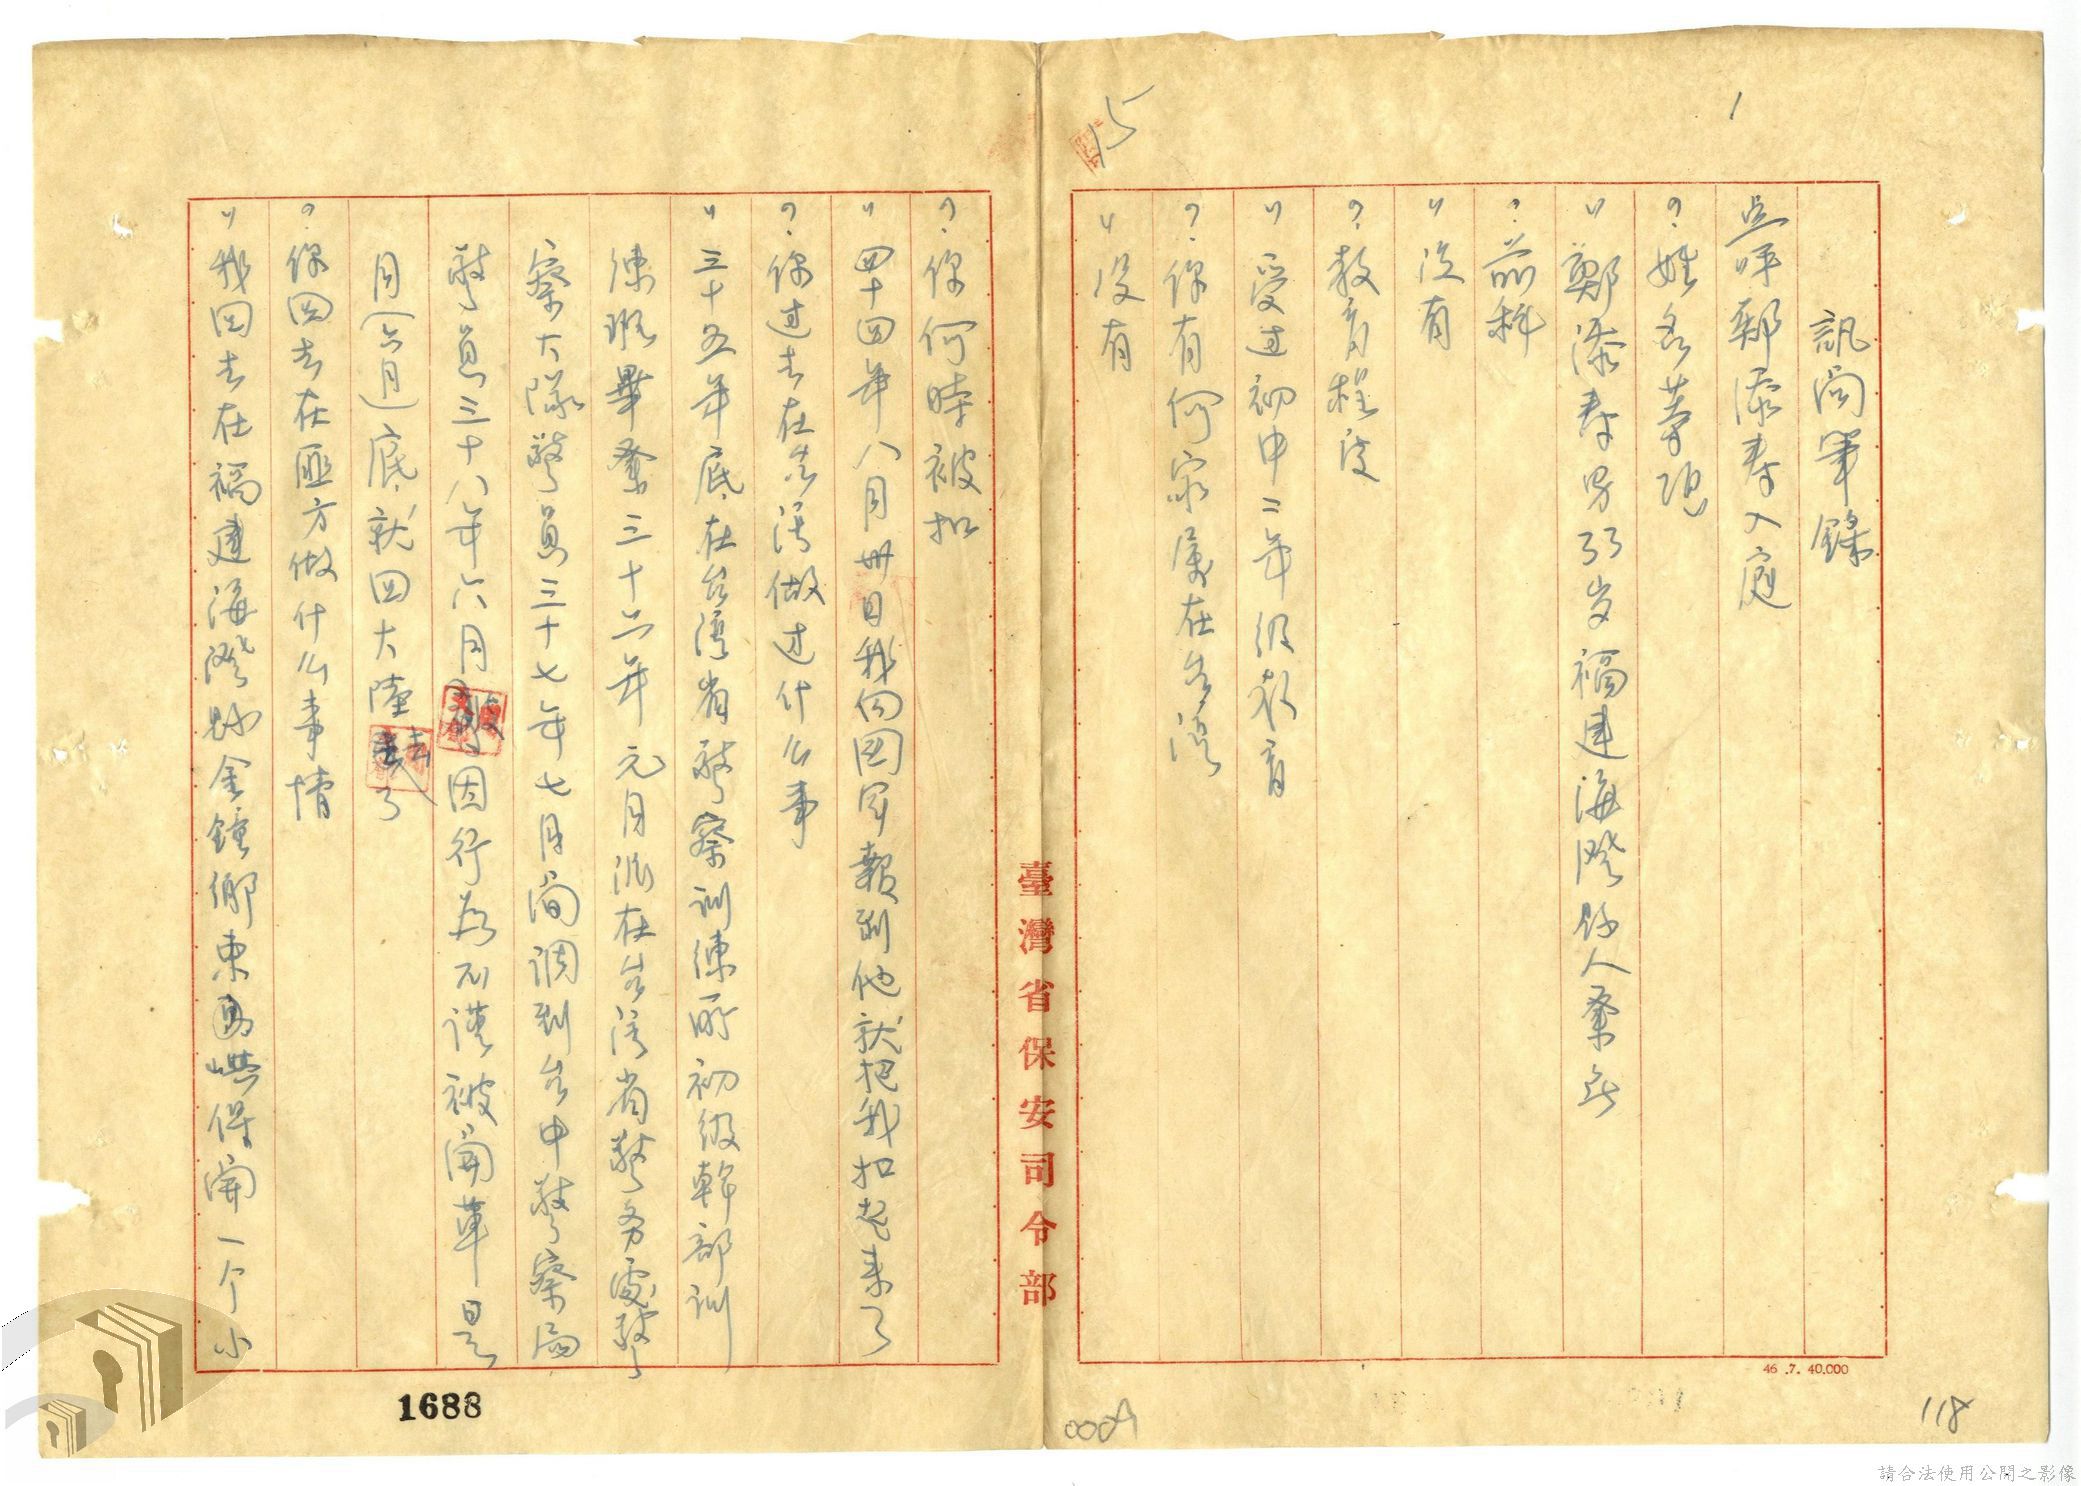 訊問筆錄
点呼鄭添壽入庭
？姓名等項
〃鄭添壽男33岁福建海澄縣人業
？前科
〃没有
？教育程度
〃受过初中二年级教育
？你有何家屬在台湾
〃没有
？你何時被扣
〃四十四年八月卅日我向国军報到他就把我扣起来了
？你过去在台湾做过什么事
〃三十五年底在台湾省警察訓練所初级幹部訓
練班畢業三十六年元月派在台湾省警务處警
察大隊警員三十七年七月间調到台中警察局
警員三十八年六月被因行為不谨被開革是
月(六月)底就回大陸去了
？你回去在匪方做什么事情
〃我回去在福建海澄縣金鐘鄉東嶼保開一个小
臺灣省保安司令部
46.7.40.000
15
1
118
0009
1688
請合法使用公開之影像